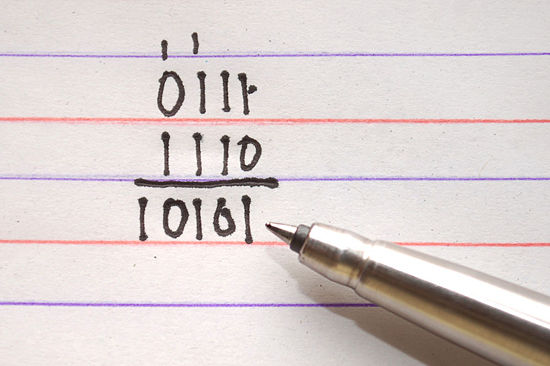 1 1
0111
1110
10101